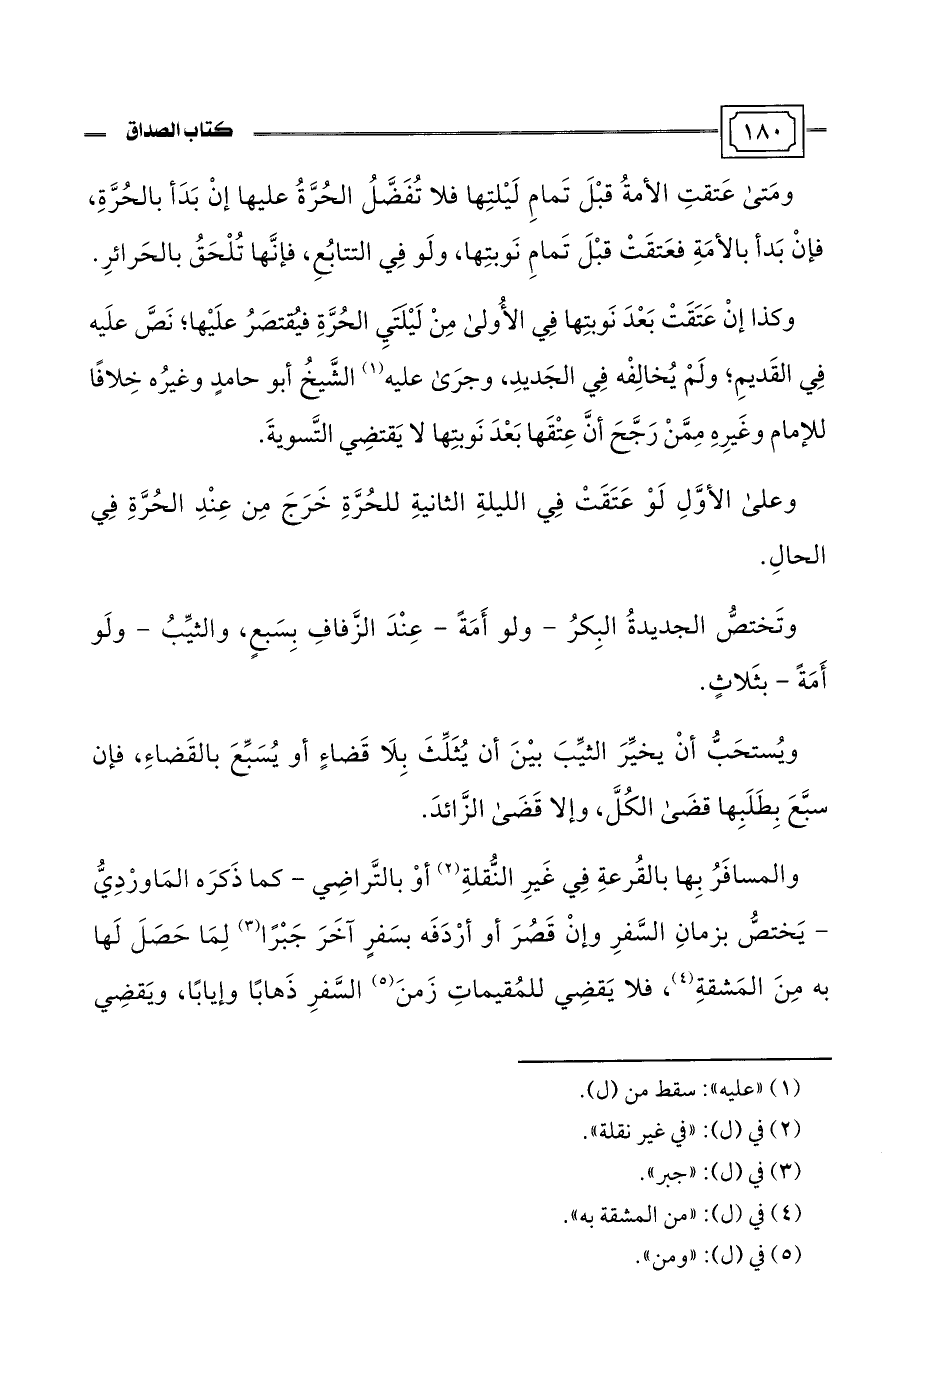 ١٨٠ كتاب الصداق
ومَتىٰ عَتقتِ الأمةُ قبْلَ تَمامِ لَيْلتِها فلا تُفَضَّلُ الحُرَّةُ عليها إنْ بَدَأ بالحُرَّةِ،
فإنْ بَدأ بالأمَةِ فعَتقَتْ قبْلَ تَمامِ نَوبتِها، ولَو فِي التتابُعِ، فإنَّها تُلْحَقُ بالحَرائرِ.
وكذا إنْ عَتَقَتْ بَعْدَ نَوبتِها فِي الأُولىٰ مِنْ لَيْلَتَيِ الحُرَّةِ فيُقتصَرُ علَيْها؛ نَصَّ علَيه
فِي القَديمِ؛ ولَمْ يُخالِفْه فِي الجَديدِ، وجرَىٰ عليه(١) الشَّيخُ أبو حامدٍ وغيرُه خِلافًا
للإمام وغَيرِهِ مِمَّنْ رَجَّحَ أنَّ عِتْقَها بَعْدَ نَوبتِها لا يَقتضِي التَّسويةَ.
وعلىٰ الأوَّلِ لَوْ عَتَقَتْ فِي الليلةِ الثانيةِ للحُرَّةِ خَرَجَ مِن عِنْدِ الحُرَّةِ فِي
الحالِ.
وتَختصُّ الجديدةُ البِكرُ - ولو أَمَةً - عِنْدَ الزَّفافِ بِسَبعٍ، والثيِّبُ - ولَو
أَمَةً - بثَلاثٍ.
ويُستحَبُّ أنْ يخيِّرَ الثيِّبَ بيْنَ أن يُثَلِّثَ بِلَا قضاءٍ أو يُسَبِّعَ بالقَضاءِ، فإن
سبَّعَ بِطَلَبِها قضَىٰ الكُلَّ، وإلا قَضَىٰ الزَّائدَ.
والمسافَرُ بِها بالقُرعةِ فِي غَيرِ النُّقلةِ(٢) أوْ بالتَّراضِي - كما ذَكرَه المَاورْدِيُّ
- يَختصُّ بزمانِ السَّفرِ وإنْ قصُرَ أو أرْدَفَه بسَفرٍ آخَرَ جَبْرًا(٣) لِمَا حَصَلَ لَها
به مِنَ المَشقةِ(٤)، فلا يَقضِي للمُقيماتِ زَمنَ(٥) السَّفرِ ذَهابًا وإيابًا، ويَقضِي
(١) «عليه»: سقط من (ل).
(٢) في (ل): «في غير نقلة».
(٣) في (ل): «جبر».
(٤) في (ل): «من المشقة به».
(٥) في (ل): «ومن».